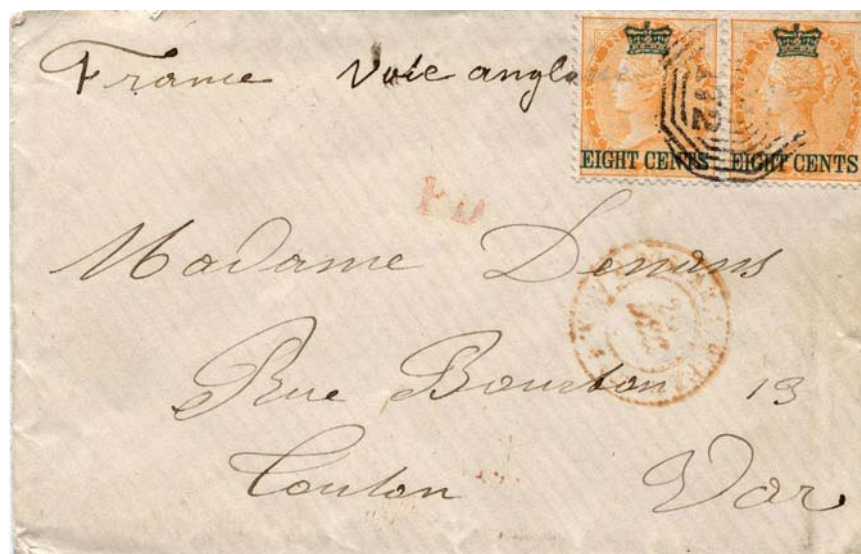 France Voie anglaise
EIGHT CENTS EIGHT CENTS
PD
Madame Denans
Rue Bourbon 13
Toulon Var